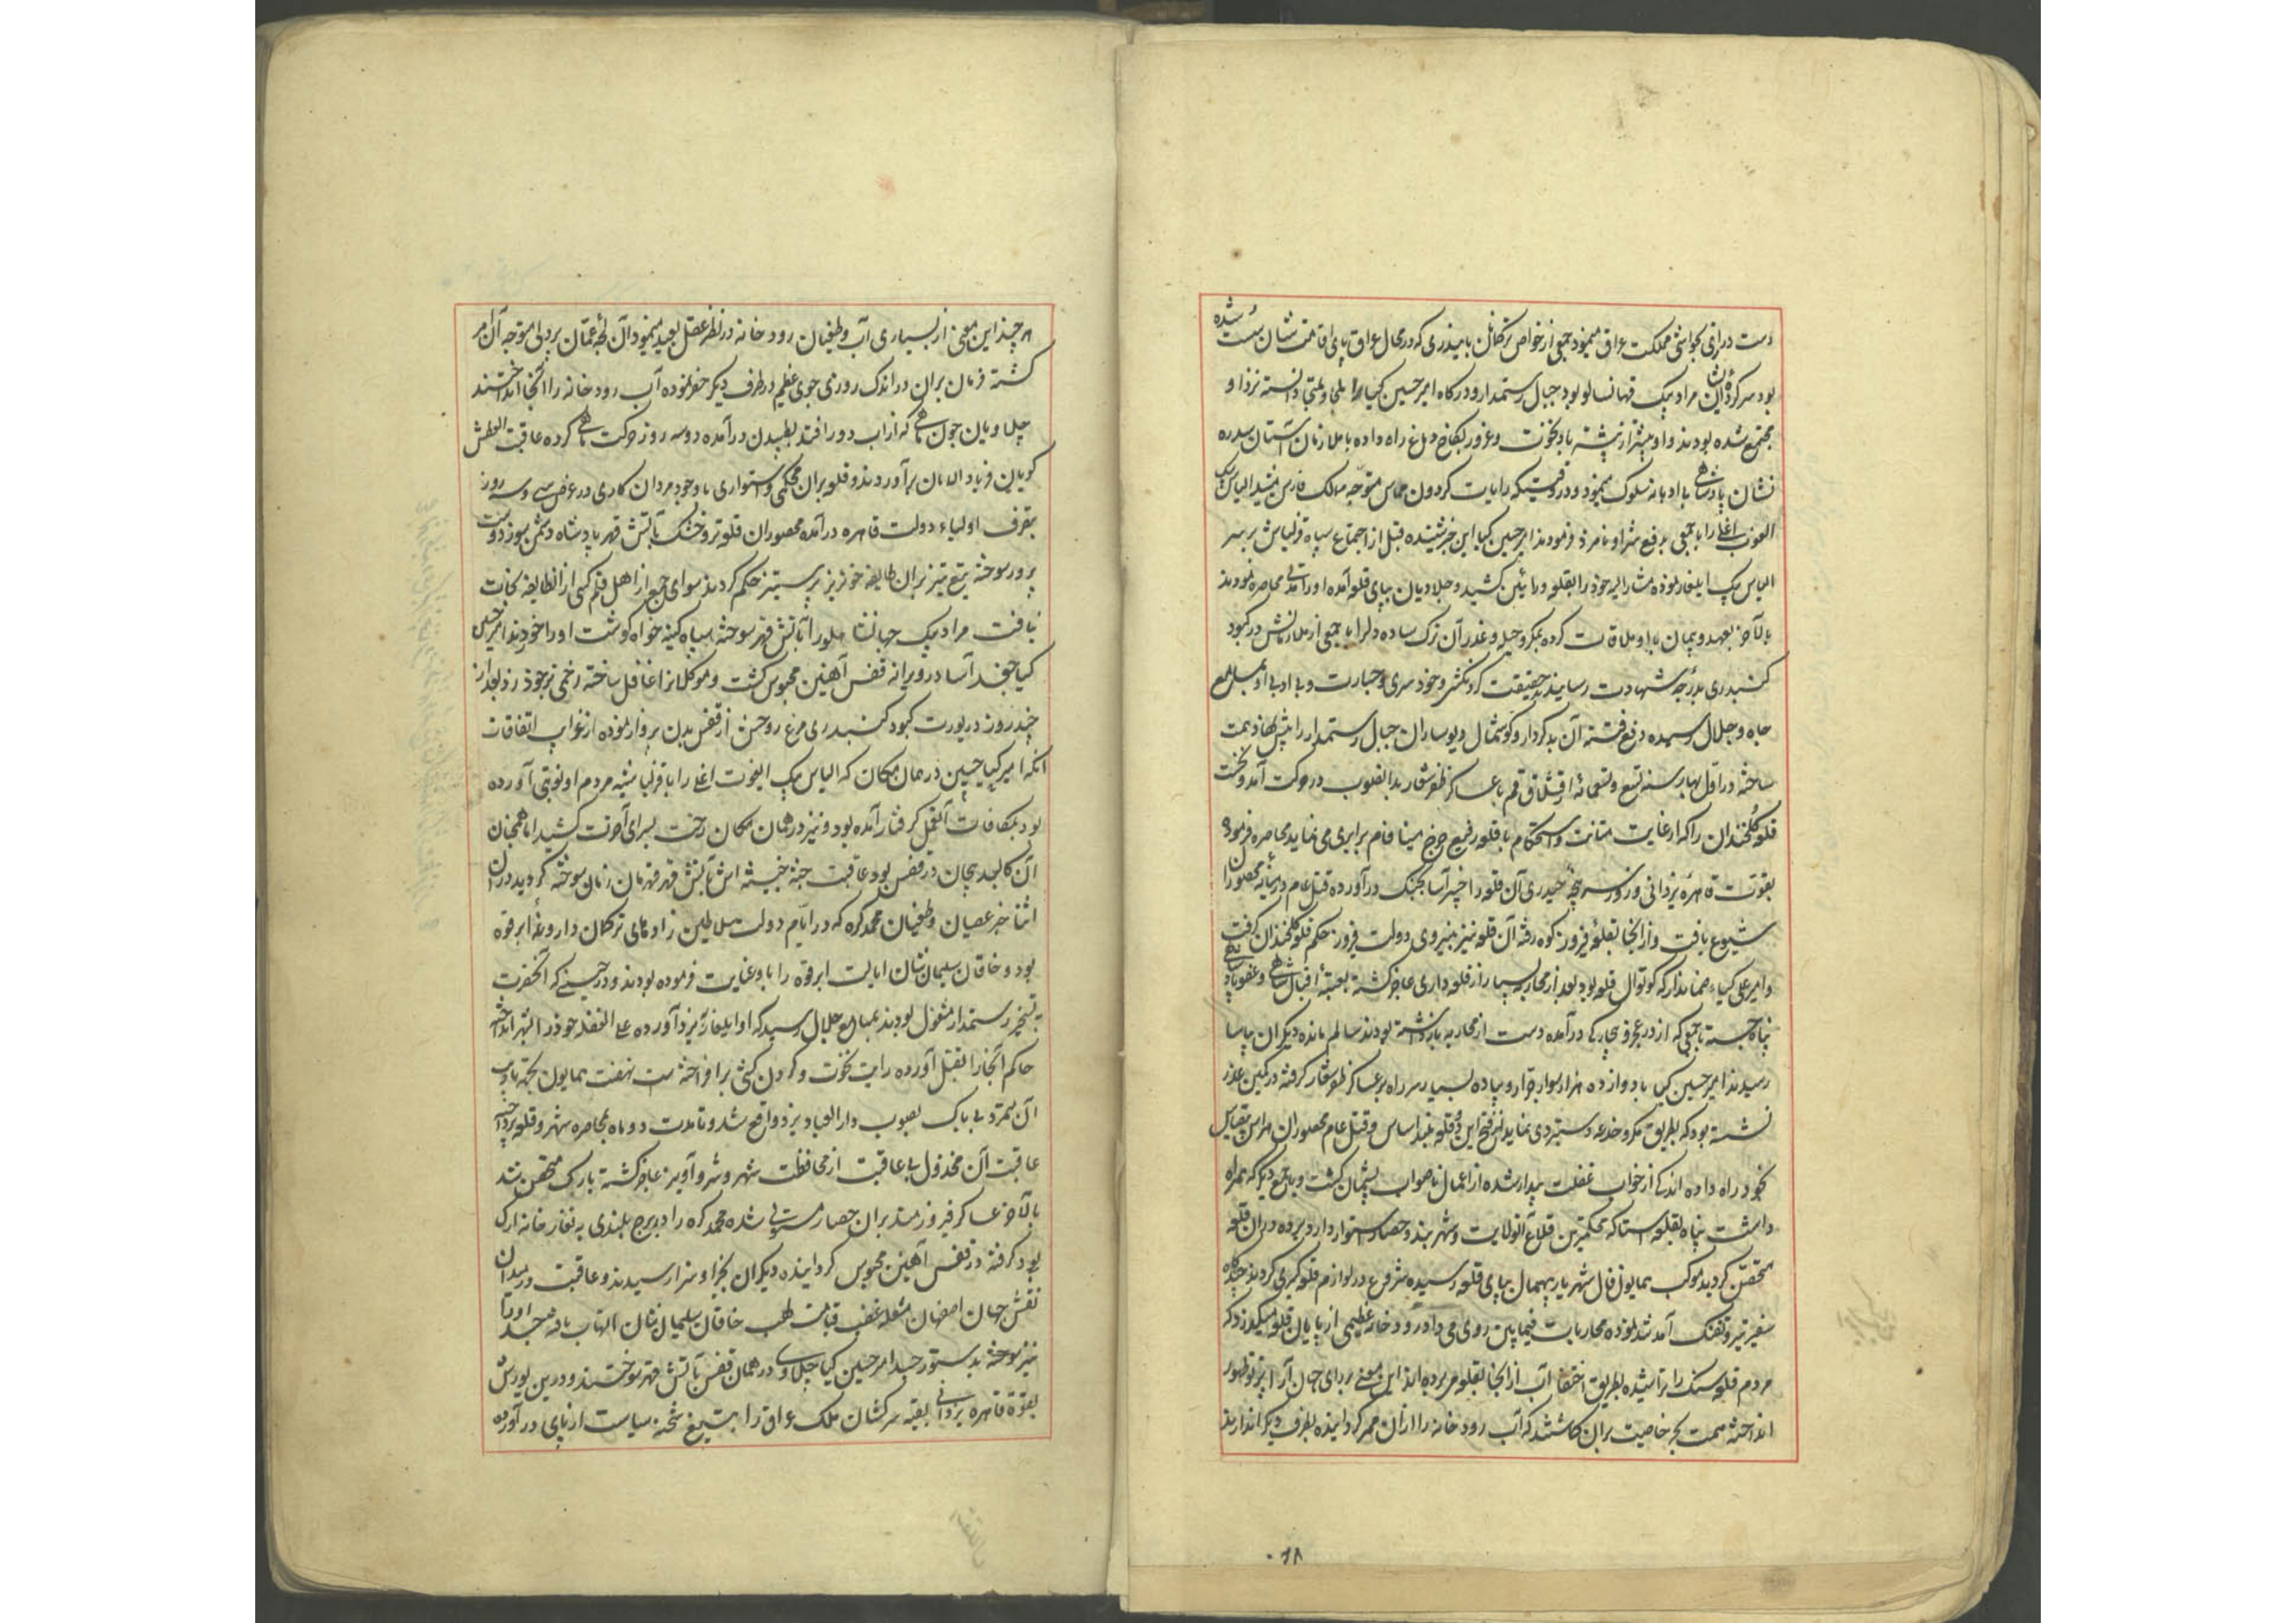 دست درازی بحواشی مملکت عراق مینمود جمعی از خواص ترکمانان بایندری که در محال عراق پای اقامتشان سست شده
بود سرکرده ایشان مراد بیک جهانشالو بود جبال رستمدار و درگاه امیر حسین کیا را ملجا و ملتجی دانسته نزد او
مجتمع شده بودند و او بیشتر از پیشتر باد نخوت و غرور بکاخ دماغ راه داده با ملازمان آستان سدره
نشان پادشاهی بی ادبانه سلوک مینمود و در وقتیکه رایات گردون مماس متوجه ممالک فارس میشد الیاس بیک
ایغوت اغلی را با جمعی بدفع شر او نامزد فرمودند امیر حسین کیا این خبر شنیده قبل از اجتماع سپاه قزلباش بر سر
الیاس بیک ایلغار نموده مشار الیه خود را بقلعه ورامین کشید و چلاویان بپای قلعه آمده او را مدتی محاصره نمودند
بالآخر بعهد و پیمان با او ملاقات کرده بمکر و حیله و غدر آن ترک ساده دل را با جمعی از ملازمانش در کبود
گنبدی بدرجه شهادت رسانیدند حقیقت گردنکشی و خودسری و جسارت و بی ادبی او بمسامع
جاه و جلال رسیده دفع فتنه آن بدکردار و گوشمال دیوساران جبال رستمدار را پیش نهاد همت
ساخته در اول بهار سنه تسع و تسعمائه از قشلاق قم با عساکر ظفر شعار بدانصوب در حرکت آمد و نخست
قلعه گلخندان را که از غایت متانت و استحکام با قلعه رفیع چرخ مینا فام برابری می نماید محاصره فرمود و
بقوت قاهره یزدانی و زور سرپنجه حیدری آن قلعه را خیبر آسا بجنگ درآورده قتل عام در میانه محصوران
شیوع یافت و از آنجا بقلعه فیروز کوه رفته آن قلعه نیز بنیروی دولت فیروز حکم قلعه گلخندان گرفت
و امیر علی کیاء ضماندار که کوتوال قلعه بود بعد از محاربه بسیار از قلعه داری عاجز گشته بعتبه اقبال شاهی و عفو پادشاهی
پناه جسته با جمعی که از در عجز و بیچارگی درآمده دست از محاربه باز داشته بودند سالم مانده دیگران بیاسا
رسیدند امیر حسین کیا با دوازده هزار سوار جرار و پیاده بسیار سر راه بر عساکر ظفر شعار گرفته در کمین غدر
نشسته بود که بطریق مکر و خدعه دستبردی نماید از فتح این دو قلعه بلند اساس و قتل عام محصوران هراس بیقیاس
بخود راه داده اندکی از خواب غفلت بیدار شده از اعمال ناصواب پشیمان گشت و با جمع دیگر که همراه
داشت پناه بقلعه استا که محکمترین قلاع آنولایت و شهر بند و حصار استوار دارد برده در ان قلعه
متحصن گردید موکب همایون فال شهریار بیهمال بپای قلعه رسیده شروع در لوازم قلعه گیری کردند چندگاه
سفیر تیر و تفنگ آمد شد نموده محاربات فیما بین روی می داد و رودخانه عظیمی از پایان قلعه میگذرد که
مردم قلعه سنگ را تراشیده بطریق اختفا آب از آنجا بقلعه می برده اند این معنی بر رای جهان آرا پرتو ظهور
انداخته همت بحر خاصیت بران گماشتند که آب رودخانه را از ان ممر گردانیده بطرف دیگر اندازند
۶۸
هر چند این معنی از بسیاری آب و طغیان رودخانه در نظر عقل بعید مینمود آن لجه عمان پردلی متوجه آن امر
گشته فرمان بران در اندک روزی جوی عظیم در طرف دیگر حفر نموده آب رودخانه را آنجا انداختند
چلاویان چون ماهی که از آب دور افتد بطپیدن درآمده دو سه روز حرکت ماهی کرده عاقبت العطش
گویان فریاد الامان برآوردند و قلعه بران محکمی و استواری با وجود مردان کاری در عرض سی و سه روز
بتصرف اولیاء دولت قاهره درآمده محصوران قلعه تر و خشک بآتش قهر پادشاه دشمن سوز دوست
پرور سوخته تیغ تیز بران طایفه خونریز پرستیز حکم کردند سوای جمعی از اهل قلم کسی از انطایفه نجات
نیافت مراد بیک جهانشالو را بآتش قهر سوخته سپاه کینه خواه گوشت او را خوردند امیر حسین
کیا جغد آسا در ویرانه قفس آهنین محبوس گشت و موکلان را غافل ساخته زخمی بر خود زد بعد از
چند روز در یورت کبود گنبدی مرغ روحش از قفس بدن پرواز نموده از غرایب اتفاقات
آنکه امیر کیا حسین در همان مکان که الیاس بیک ایغوت اغلی را با قزلباشیه مردم او بقتل آورده
بود بمکافات آنعمل گرفتار آمده بود و نیز در همان مکان رخت بسرای آخرت کشید اما همچنان
آن کالبد بیجان در قفس بود عاقبت جثه خبیثه اش بآتش قهر قهرمان زمان سوخته گردید در ان
اثنا خبر عصیان و طغیان محمد کره که در ایام دولت سلاطین زاده های ترکمان داروغه ابرقوه
بود و خاقان سلیمان شان ایالت ابرقوه را باو عنایت فرموده بودند و در حینی که آنحضرت
بتسخیر رستمدار مشغول بودند بمسامع جلال رسید که او ایلغار به یزد آورده علی الغفله خود را بشهر انداخته
حاکم آنجا را بقتل آورده رایت نخوت و گردن کشی برافراخته است نهضت همایون بجهة تادیب
آن متمرد بی باک بصوب دار العباد یزد واقع شد و تا مدت دو ماه بمحاصره شهر و قلعه پرداخته
عاقبت آن مخذول بی عاقبت از محافظت شهر و شیر و آویز عاجز گشته بارک متحصن شد
بالآخر عساکر فیروزمند بران حصار مستولی شده محمد کره را در برج بلندی به نقار خانه ارک
بود گرفته در قفس آهنین محبوس گردانیده دیگران بجزا و سزا رسیدند و عاقبت در میدان
نقش جهان اصفهان شعله غضب قیامت لهب خاقان سلیمان شان التهاب یافته جسد او را
نیز سوخته بدستور جسد امیر حسین کیا چلاوی در همان قفس بآتش قهر سوختند و درین یورش
بقوة قاهره یزدانی بقیه سرکشان ملک عراق را بتیغ شحنه سیاست از پای درآورده